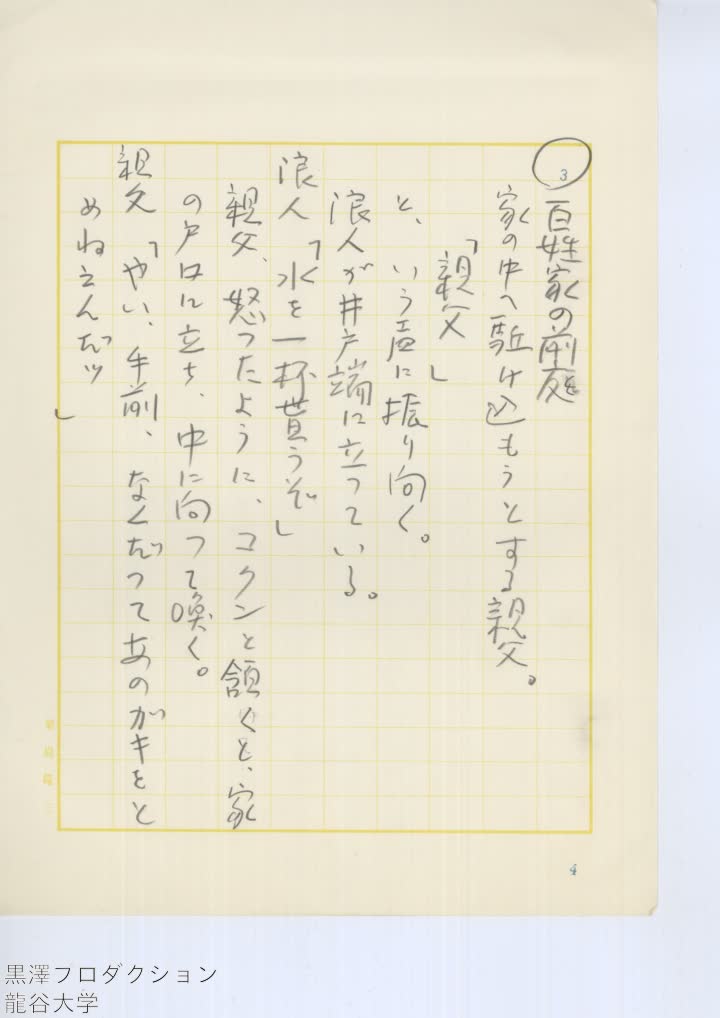 3
百姓家の前庭
家の中へ駈け込もうとする親父。
「親父」
と、いう声に振り向く。
浪人が井戸端に立っている。
浪人「水を一杯貰うぞ」
親父、怒ったように、コクンと頷くと、家
の戸口に立ち、中に向って喚く。
親父「やい、手前、なくだってあのガキをと
めねえんだッ」
4
黒澤プロダクション
龍谷大学